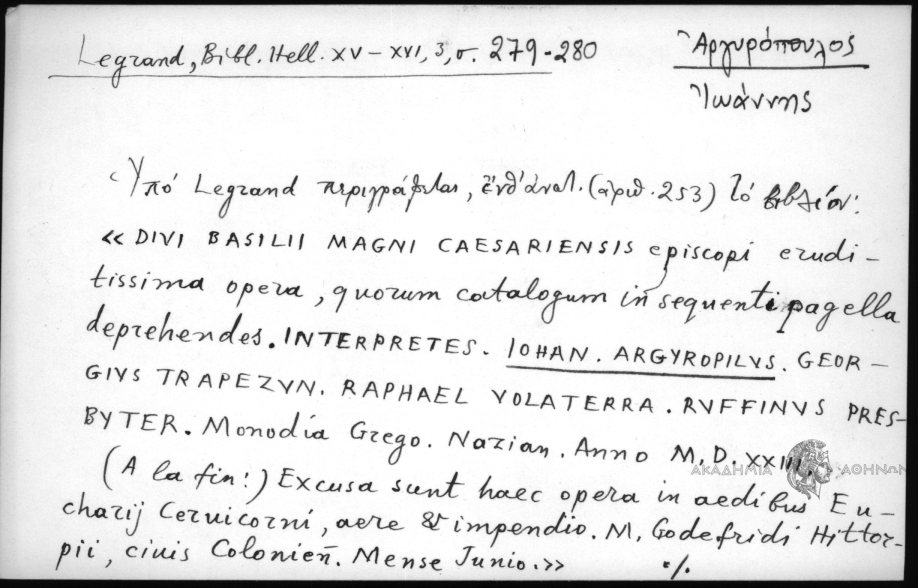 Legrand, Bibl. Hell. XV – XVI, 3, σ. 279-280
Ἀργυρόπουλος
Ἰωάννης
Ὑπό Legrand περιγράφεται, ἔνθ' ἀνωτ. (ἀριθ. 253) τό βιβλίον:
«DIVI BASILII MAGNI CAESARIENSIS episcopi erudi-
tissima opera, quorum catalogum in sequenti pagella
deprehendes. INTERPRETES. IOHAN. ARGYROPILVS. GEOR-
GIVS TRAPEZVN. RAPHAEL VOLATERRA. RVFFINVS PRES-
BYTER. Monodia Grego. Nazian. Anno M.D.XXIII.
ΑΚΑΔΗΜΙΑ ΑΘΗΝΩΝ
(A la fin:) Excusa sunt haec opera in aedibus Eu-
charij Ceruicorni, aere & impendio. M. Godefridi Hittor-
pii, ciuis Colonieñ. Mense Junio.»
./.